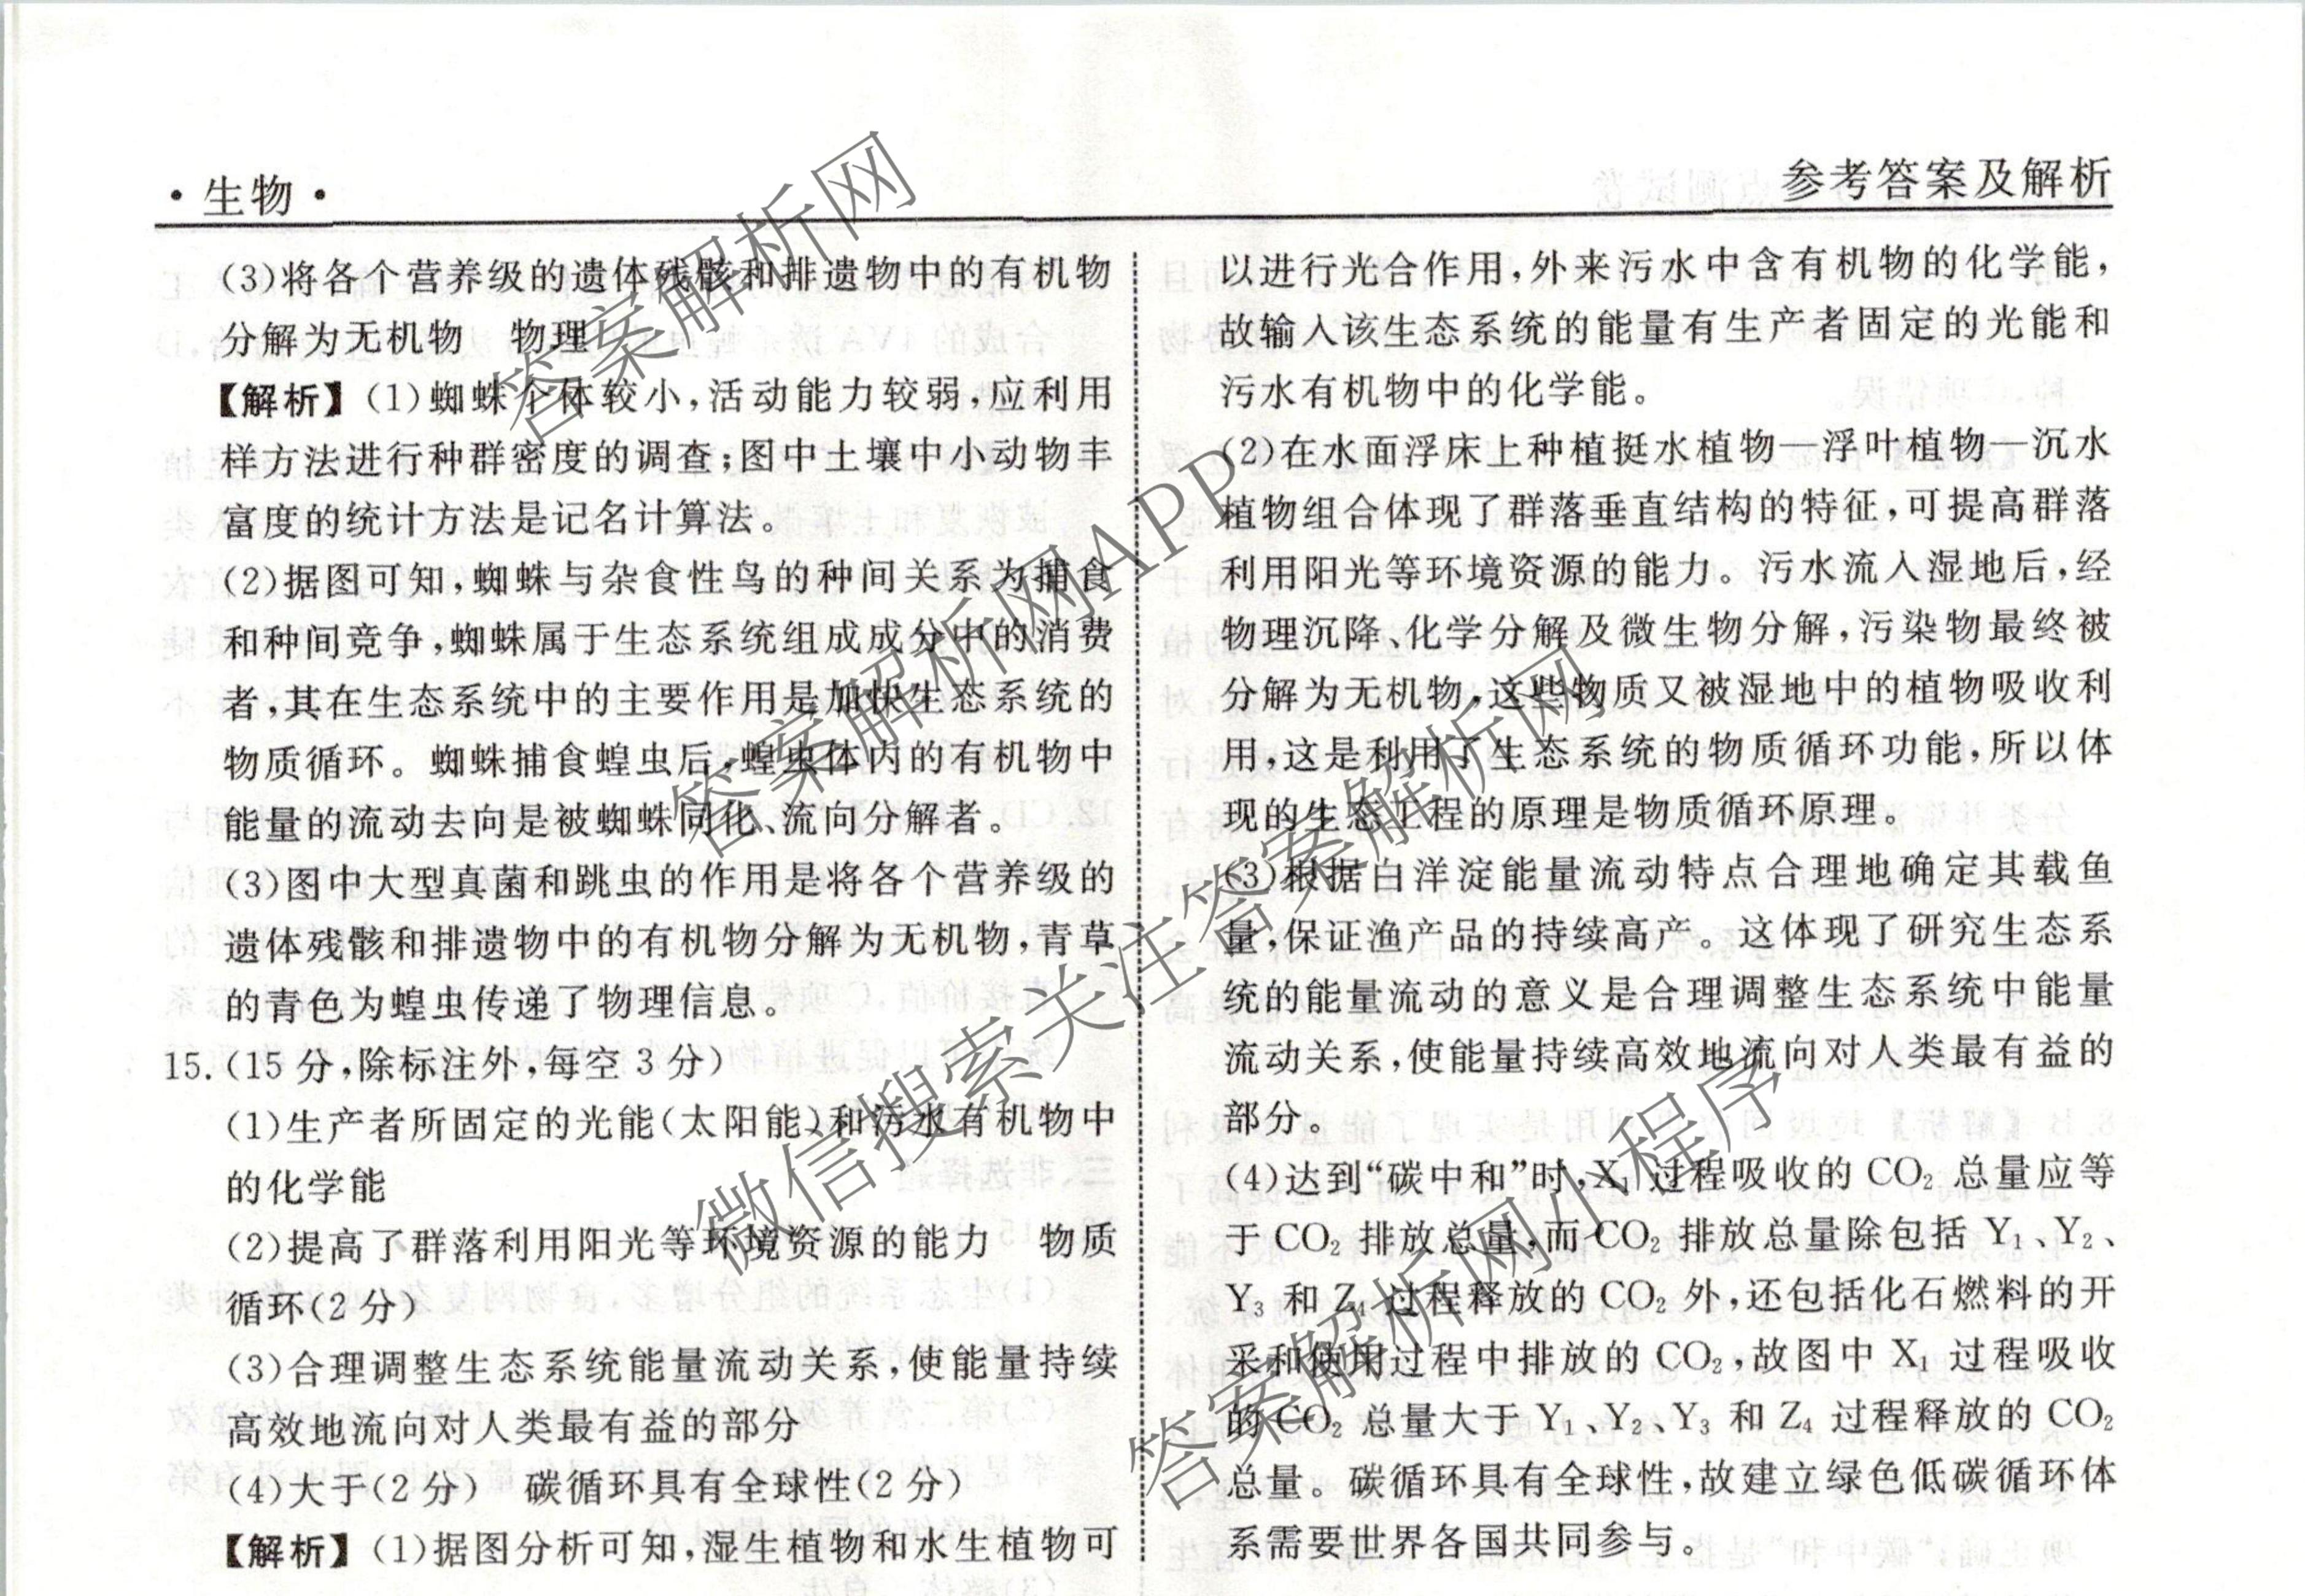 ·生物·
参考答案及解析
(3)将各个营养级的遗体残骸和排遗物中的有机物
分解为无机物　物理
【解析】(1)蜘蛛个体较小,活动能力较弱,应利用
样方法进行种群密度的调查;图中土壤中小动物丰
富度的统计方法是记名计算法。
(2)据图可知,蜘蛛与杂食性鸟的种间关系为捕食
和种间竞争,蜘蛛属于生态系统组成成分中的消费
者,其在生态系统中的主要作用是加快生态系统的
物质循环。蜘蛛捕食蝗虫后,蝗虫体内的有机物中
能量的流动去向是被蜘蛛同化、流向分解者。
(3)图中大型真菌和跳虫的作用是将各个营养级的
遗体残骸和排遗物中的有机物分解为无机物,青草
的青色为蝗虫传递了物理信息。
15.(15分,除标注外,每空3分)
(1)生产者所固定的光能(太阳能)和污水有机物中
的化学能
(2)提高了群落利用阳光等环境资源的能力　物质
循环(2分)
(3)合理调整生态系统能量流动关系,使能量持续
高效地流向对人类最有益的部分
(4)大于(2分)　碳循环具有全球性(2分)
【解析】(1)据图分析可知,湿生植物和水生植物可
以进行光合作用,外来污水中含有机物的化学能,
故输入该生态系统的能量有生产者固定的光能和
污水有机物中的化学能。
(2)在水面浮床上种植挺水植物—浮叶植物—沉水
植物组合体现了群落垂直结构的特征,可提高群落
利用阳光等环境资源的能力。污水流入湿地后,经
物理沉降、化学分解及微生物分解,污染物最终被
分解为无机物,这些物质又被湿地中的植物吸收利
用,这是利用了生态系统的物质循环功能,所以体
现的生态工程的原理是物质循环原理。
(3)根据白洋淀能量流动特点合理地确定其载鱼
量,保证渔产品的持续高产。这体现了研究生态系
统的能量流动的意义是合理调整生态系统中能量
流动关系,使能量持续高效地流向对人类最有益的
部分。
(4)达到“碳中和”时,X₁过程吸收的CO₂总量应等
于CO₂排放总量,而CO₂排放总量除包括Y₁、Y₂、
Y₃和Z₄过程释放的CO₂外,还包括化石燃料的开
采和使用过程中排放的CO₂,故图中X₁过程吸收
的CO₂总量大于Y₁、Y₂、Y₃和Z₄过程释放的CO₂
总量。碳循环具有全球性,故建立绿色低碳循环体
系需要世界各国共同参与。
答案解析网
答案解析网APP
微信搜索关注答案解析网
答案解析网小程序